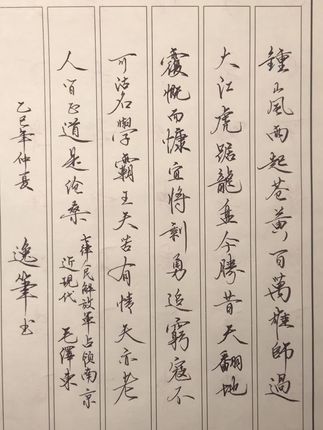 鍾山風雨起蒼黃百萬雄師過
大江虎踞龍盤今勝昔天翻地
覆慨而慷宜將剩勇追窮寇不
可沽名學霸王天若有情天亦老
人间正道是滄桑
七律人民解放軍占領南京
近現代 毛澤東
乙巳年仲夏 逸筆书